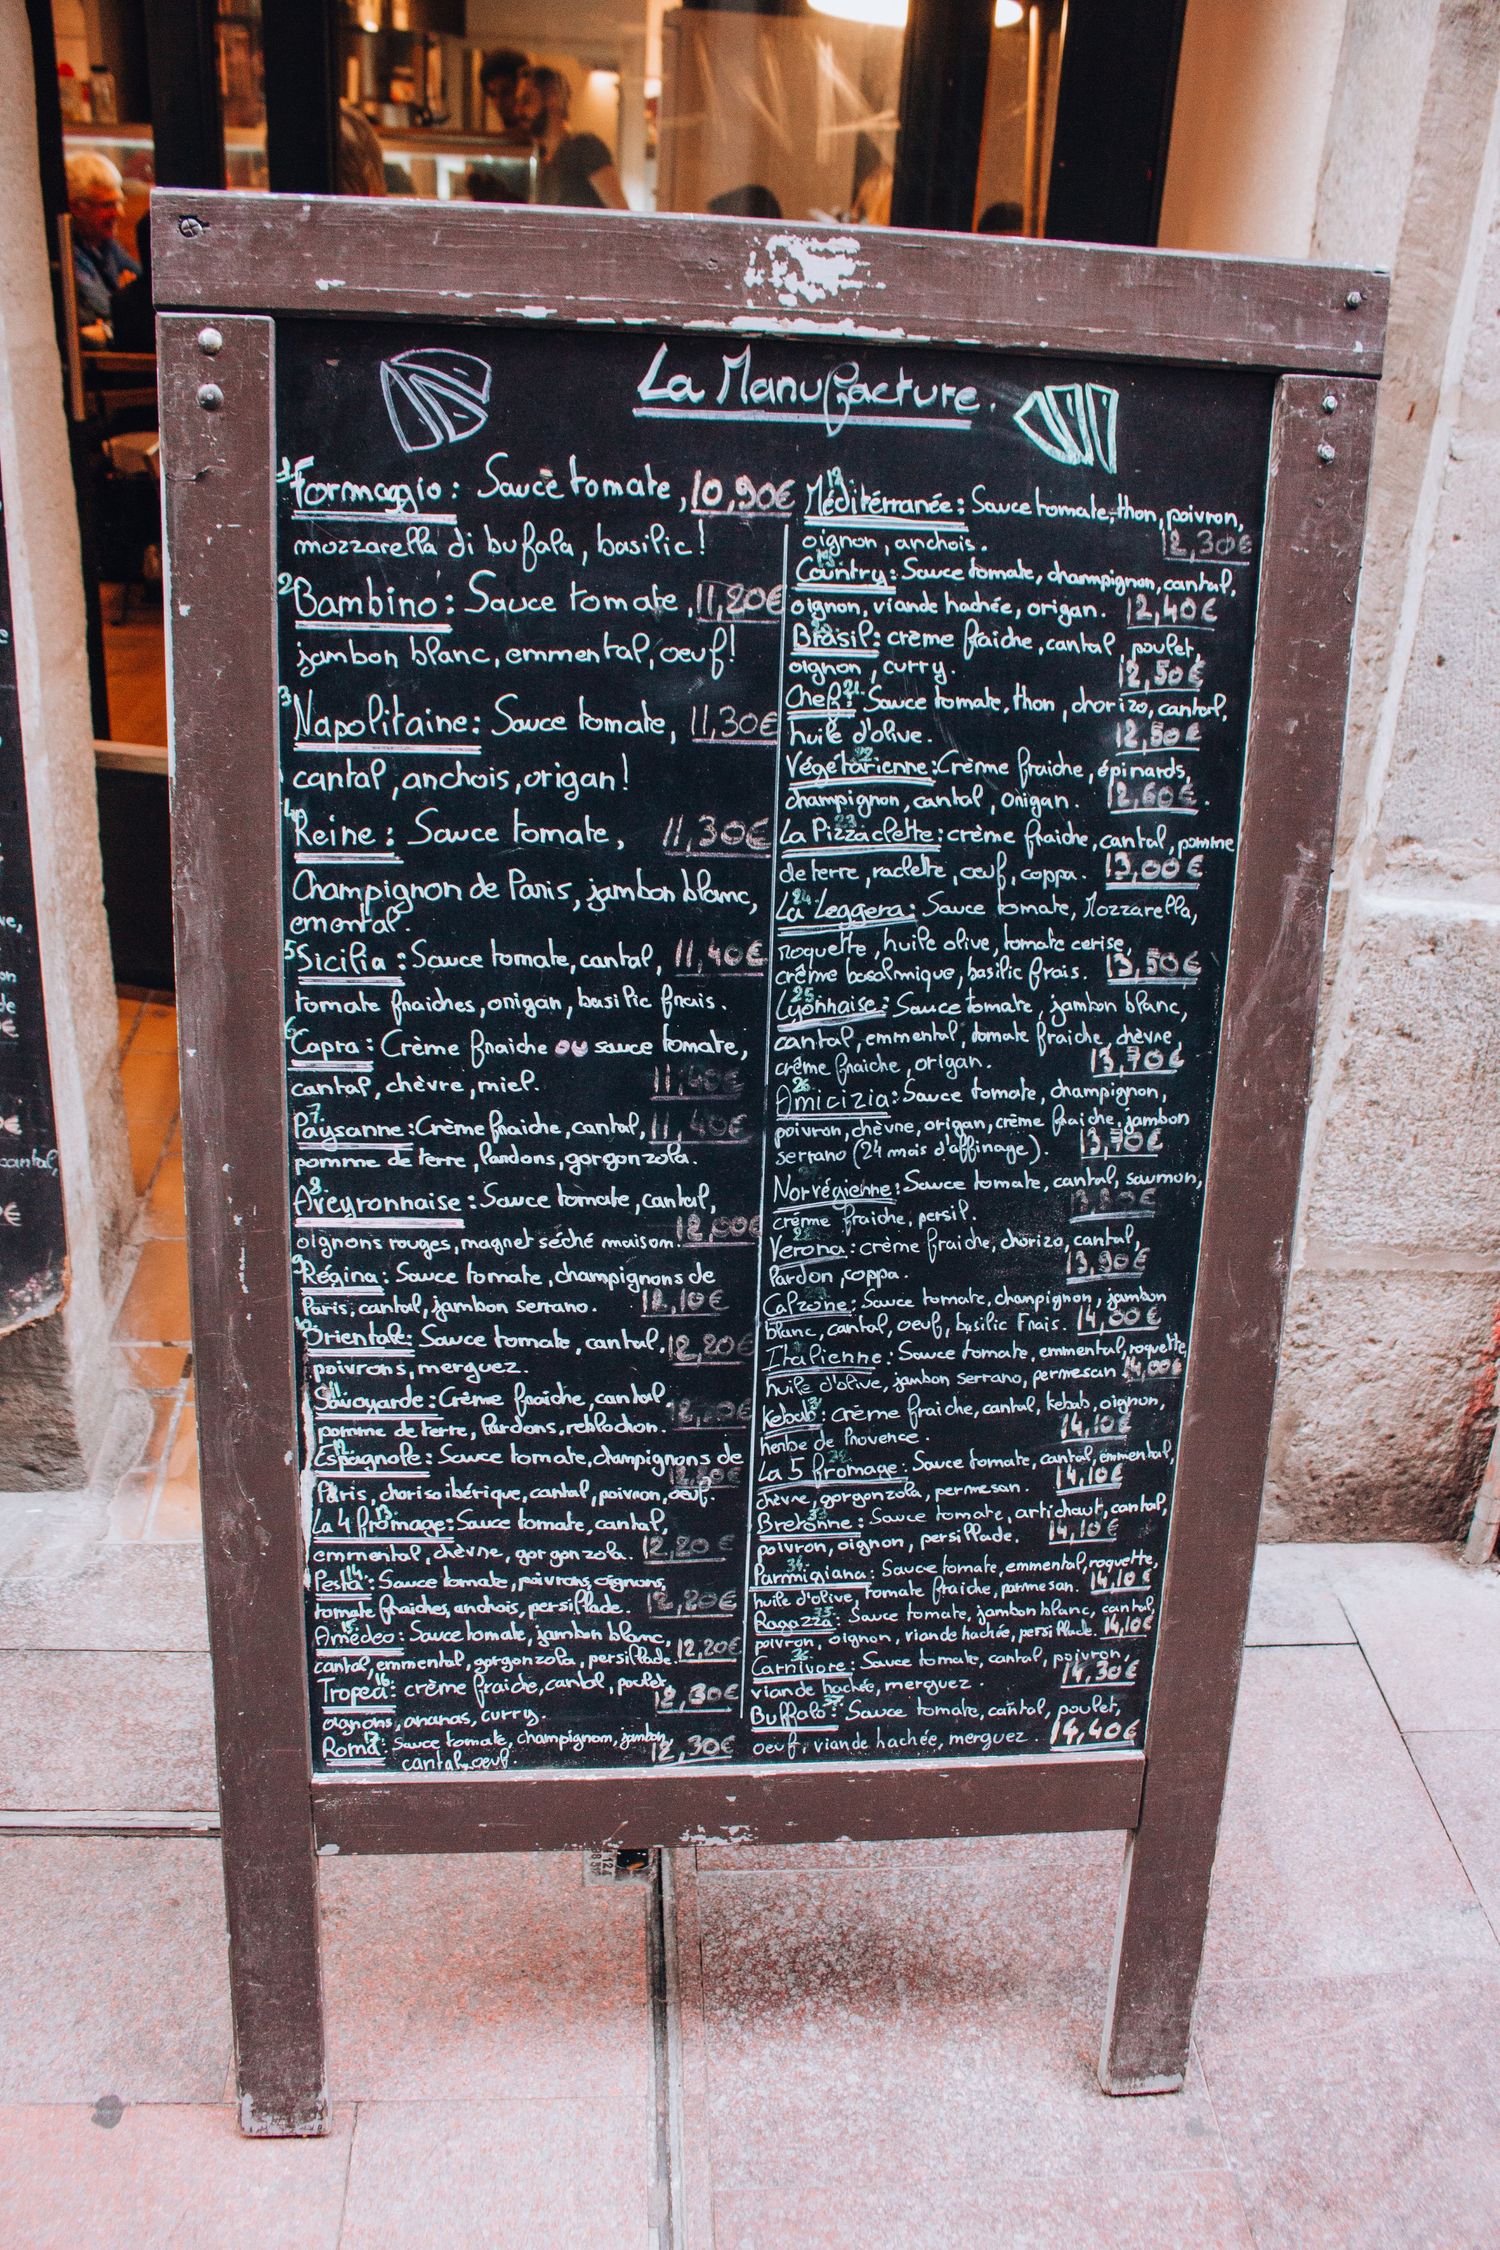 La Manufacture.
1 Formaggio : Sauce tomate, 10,90€
mozzarella di bufala, basilic !
2 Bambino : Sauce tomate, 11,20€
jambon blanc, emmental, oeuf !
3 Napolitaine : Sauce tomate, 11,30€
cantal, anchois, origan !
4 Reine : Sauce tomate, 11,30€
Champignon de Paris, jambon blanc,
emental.
5 Sicilia : Sauce tomate, cantal, 11,40€
tomate fraiches, origan, basilic frais.
6 Capra : Crème fraiche ou sauce tomate,
cantal, chèvre, miel. 11,40€
7 Paysanne : Crème fraiche, cantal, 11,40€
pomme de terre, lardons, gorgonzola.
8 Aveyronnaise : Sauce tomate, cantal,
oignons rouges, magret séché maison. 12,00€
9 Régina : Sauce tomate, champignons de
Paris, cantal, jambon serrano. 12,10€
10 Orientale : Sauce tomate, cantal, 12,20€
poivrons, merguez.
11 Savoyarde : Crème fraiche, cantal,
pomme de terre, lardons, reblochon. 12,20€
12 Espagnole : Sauce tomate, champignons de
Paris, choriso ibérique, cantal, poivron, oeuf.
La 4 fromage : 13 Sauce tomate, cantal,
emmental, chèvre, gorgonzola. 12,20€
14 Pesta : Sauce tomate, poivrons, oignons,
tomate fraiches, anchois, persillade. 12,20€
15 Amédéo : Sauce tomate, jambon blanc,
cantal, emmental, gorgonzola, persillade. 12,20€
Tropea 16 : crème fraiche, cantal, poulet,
oignons, ananas, curry. 12,30€
Roma 17 : Sauce tomate, champignon, jambon,
cantal, oeuf. 12,30€
18 Méditérranée : Sauce tomate, thon, poivron,
oignon, anchois. 12,30€
19 Country : Sauce tomate, champignon, cantal,
oignon, viande hachée, origan. 12,40€
Brasil : crème fraiche, cantal, poulet,
oignon, curry. 12,50€
Chef 21 : Sauce tomate, thon, chorizo, cantal,
huile d'olive. 12,50€
Végétarienne 22 : Crème fraiche, épinards,
champignon, cantal, origan. 12,60€.
La Pizzaclette 23 : crème fraiche, cantal, pomme
de terre, raclette, oeuf, coppa. 13,00€
La Leggera 24 : Sauce tomate, Mozzarella,
roquette, huile olive, tomate cerise,
crème basalmique, basilic frais. 13,50€
25 Lyonnaise : Sauce tomate, jambon blanc,
cantal, emmental, tomate fraiche, chèvre,
crême fraiche, origan. 13,70€
26 Amicizia : Sauce tomate, champignon,
poivron, chèvre, origan, crème fraiche, jambon
serrano (24 mois d'affinage). 13,70€
Norvégienne : Sauce tomate, cantal, saumon,
crème fraiche, persil.
Verona : crème fraiche, chorizo, cantal,
lardon, coppa. 13,90€
Calzone : Sauce tomate, champignon, jambon
blanc, cantal, oeuf, basilic frais. 14,00€
Italienne : Sauce tomate, emmental, roquette,
huile d'olive, jambon serrano, permesan 14,00€
Kebab 31 : crème fraiche, cantal, kebab, oignon,
herbe de Provence. 14,10€
La 5 fromage : Sauce tomate, cantal, emmental,
chèvre, gorgonzola, permesan. 14,10€
Bretonne 33 : Sauce tomate, artichaut, cantal,
poivron, oignon, persillade. 14,10€
34 Parmigiana : Sauce tomate, emmental, roquette,
huile d'olive, tomate fraiche, parmesan. 14,10€
Ragazza 35 : Sauce tomate, jambon blanc, cantal,
poivron, oignon, viande hachée, persillade. 14,10€
Carnivore 36 : Sauce tomate, cantal, poivron,
viande hachée, merguez. 14,30€
Buffalo 37 : Sauce tomate, cantal, poulet,
oeuf, viande hachée, merguez. 14,40€